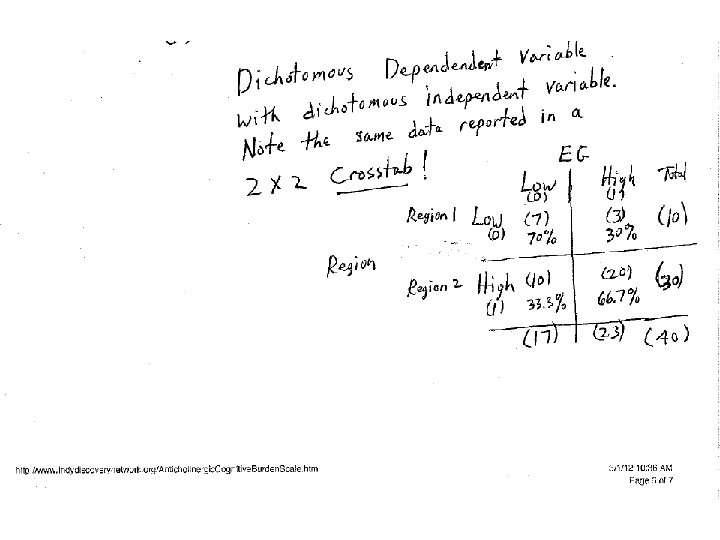 Dichotomous Dependendent Variable
with dichotomous independent variable.
Note the same data reported in a
2 X 2 Crosstab!
EG
Low High Total
(0) (1)
Region 1 Low (7) (3) (10)
(0) 70% 30%
Region
Region 2 High (10) (20) (30)
(1) 33.3% 66.7%
(17) (23) (40)
http://www.indydiscoverynetwork.org/AnticholinergicCognitiveBurdenScale.htm
10:36 AM
Page 6 of 7